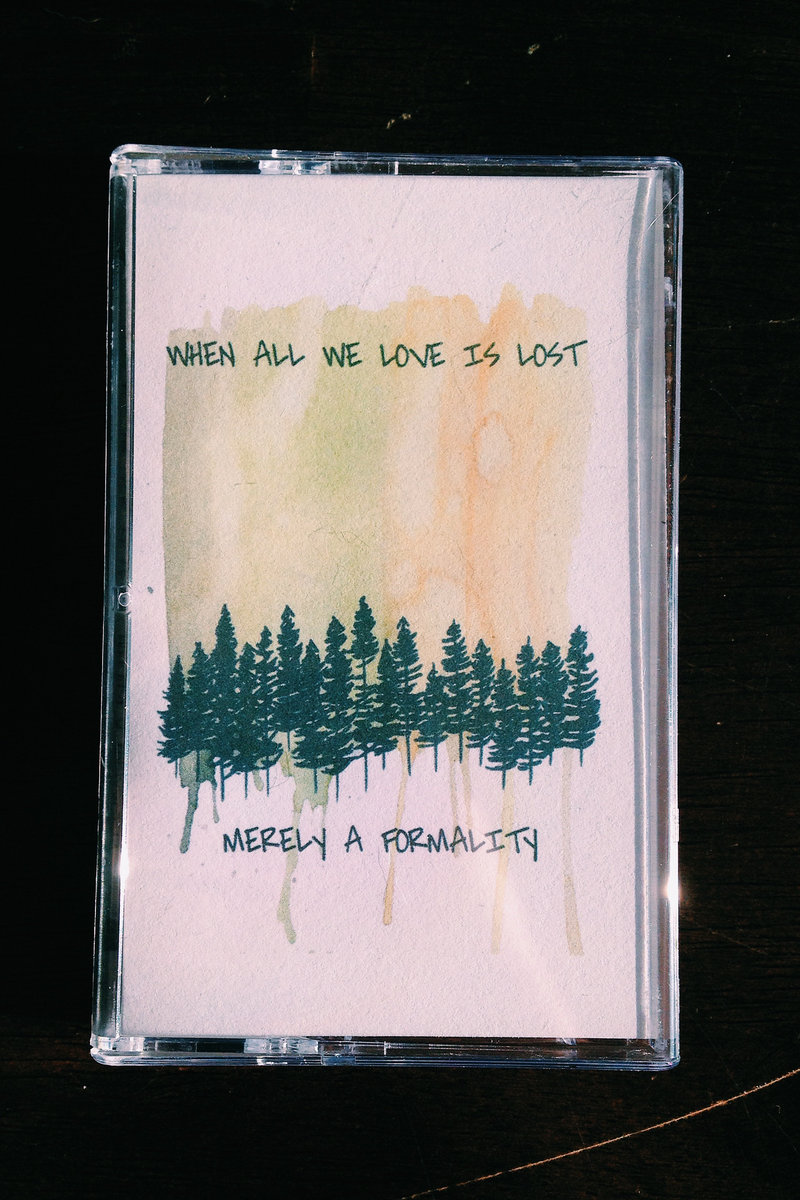 WHEN ALL WE LOVE IS LOST
MERELY A FORMALITY